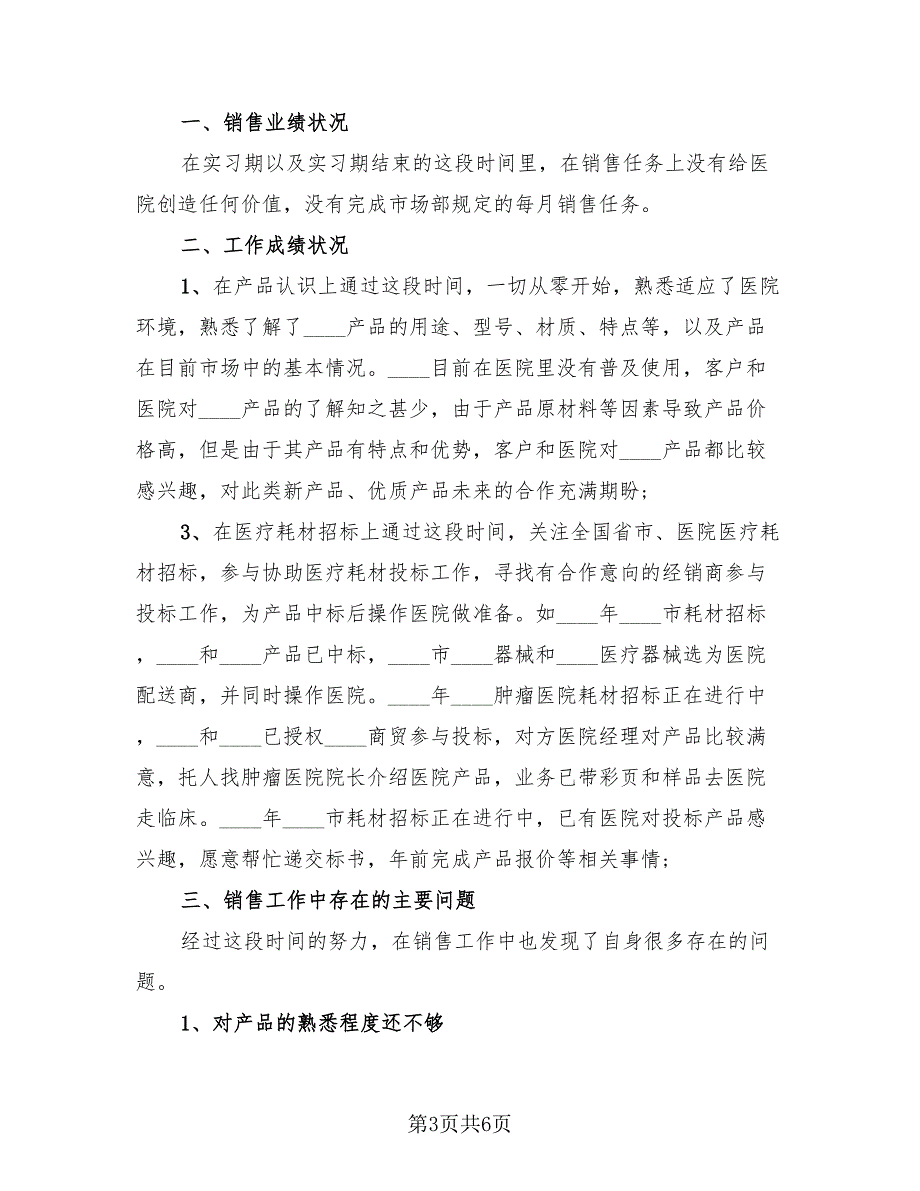 一、销售业绩状况
在实习期以及实习期结束的这段时间里，在销售任务上没有给医
院创造任何价值，没有完成市场部规定的每月销售任务。
二、工作成绩状况
1、在产品认识上通过这段时间，一切从零开始，熟悉适应了医院
环境，熟悉了解了____产品的用途、型号、材质、特点等，以及产品
在目前市场中的基本情况。____目前在医院里没有普及使用，客户和
医院对____产品的了解知之甚少，由于产品原材料等因素导致产品价
格高，但是由于其产品有特点和优势，客户和医院对____产品都比较
感兴趣，对此类新产品、优质产品未来的合作充满期盼;
3、在医疗耗材招标上通过这段时间，关注全国省市、医院医疗耗
材招标，参与协助医疗耗材投标工作，寻找有合作意向的经销商参与
投标工作，为产品中标后操作医院做准备。如____年____市耗材招标
，____和____产品已中标，____市____器械和____医疗器械选为医院
配送商，并同时操作医院。____年____肿瘤医院耗材招标正在进行中
，____和____已授权____商贸参与投标，对方医院经理对产品比较满
意，托人找肿瘤医院院长介绍医院产品，业务已带彩页和样品去医院
走临床。____年____市耗材招标正在进行中，已有医院对投标产品感
兴趣，愿意帮忙递交标书，年前完成产品报价等相关事情;
三、销售工作中存在的主要问题
经过这段时间的努力，在销售工作中也发现了自身很多存在的问
题。
1、对产品的熟悉程度还不够
第3页共6页